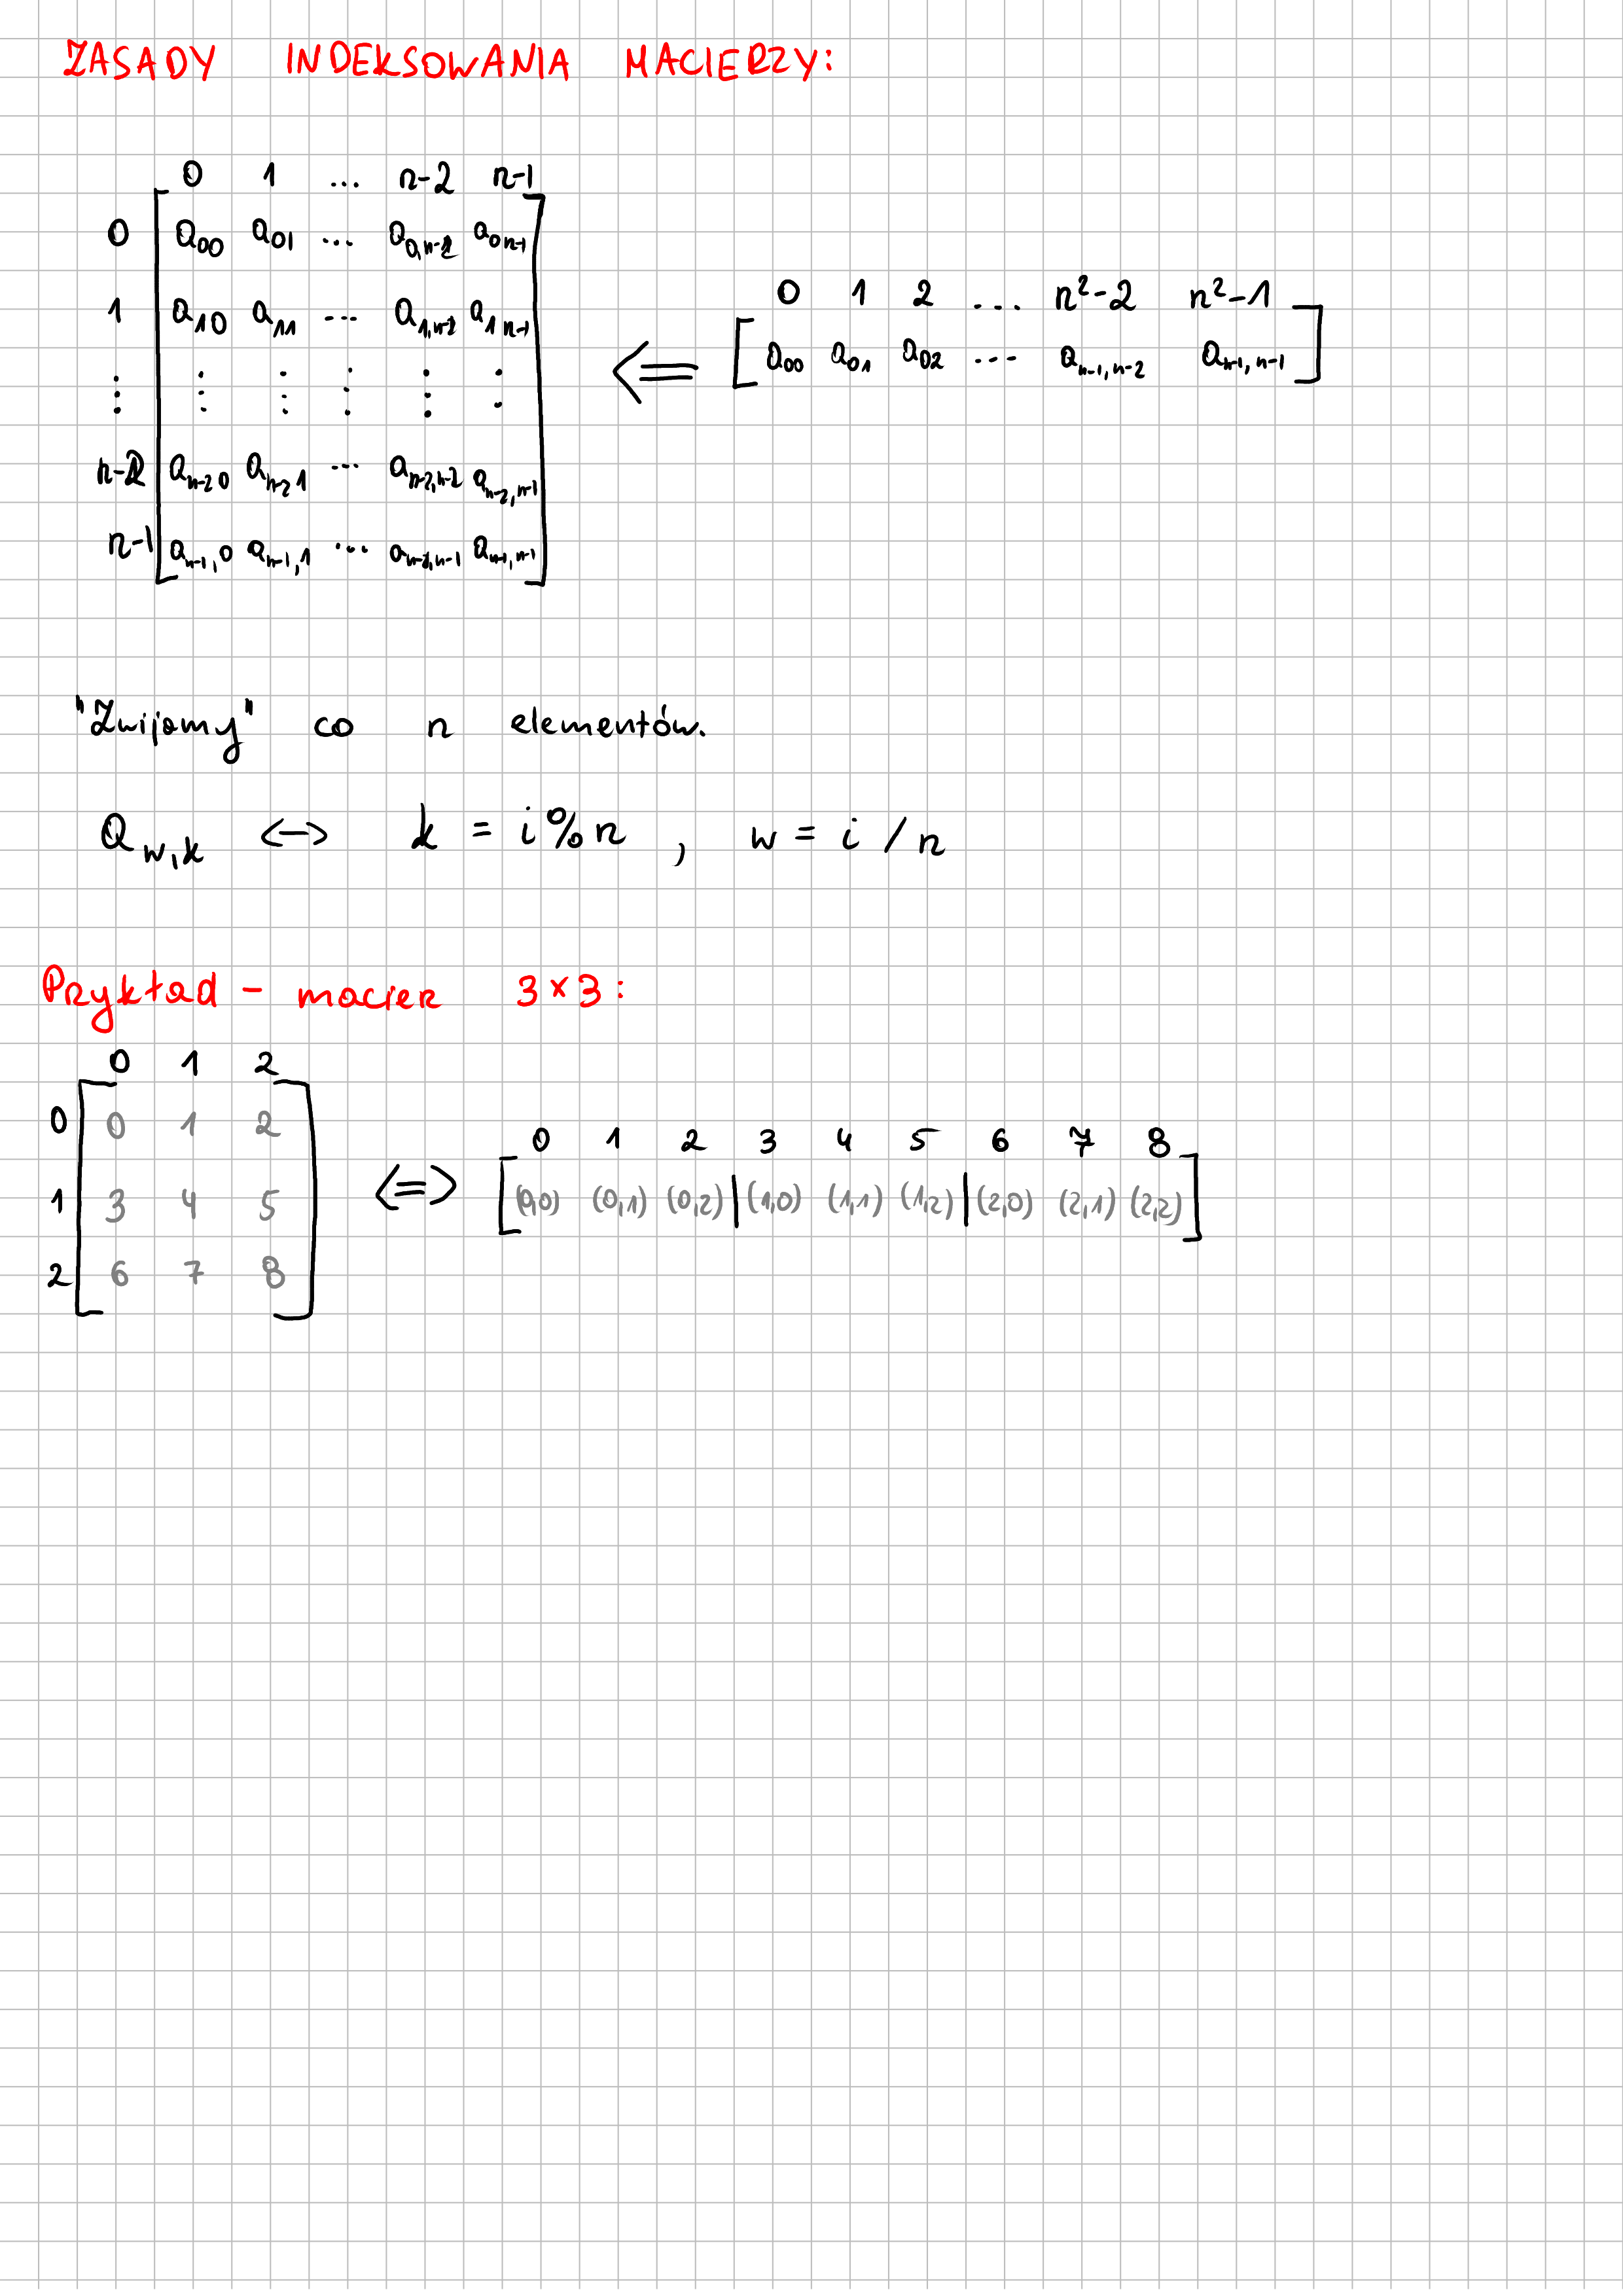 ZASADY INDEKSOWANIA MACIERZY:
0 1 ... n-2 n-1
0 a₀₀ a₀₁ ... a₀,ₙ₋₂ a₀ₙ₋₁
1 a₁₀ a₁₁ ... a₁,ₙ₋₂ a₁ₙ₋₁
⋮ ⋮ ⋮ ⋮ ⋮ ⋮
n-2 aₙ₋₂₀ aₙ₋₂₁ ... aₙ₋₂,ₙ₋₂ aₙ₋₂,ₙ₋₁
n-1 aₙ₋₁,₀ aₙ₋₁,₁ ... aₙ₋₂,ₙ₋₁ aₙ₋₁,ₙ₋₁
⇐
0 1 2 ... n²-2 n²-1
[a₀₀ a₀₁ a₀₂ ... aₙ₋₁,ₙ₋₂ aₙ₋₁,ₙ₋₁]
"Zwijamy" co n elementów.
a_w,k <-> k = i%n , w = i / n
Przykład - macierz 3×3:
0 1 2
0 0 1 2
1 3 4 5
2 6 7 8
<=>
0 1 2 3 4 5 6 7 8
[(0,0) (0,1) (0,2) | (1,0) (1,1) (1,2) | (2,0) (2,1) (2,2)]